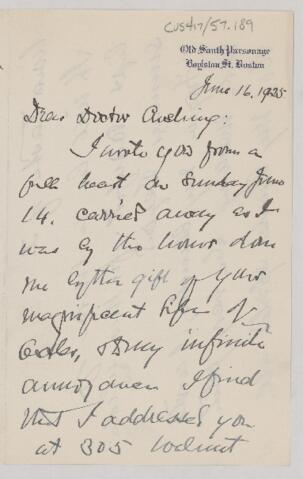 CUS417/57.189
Old South Parsonage
Boylston St. Boston
June 16. 1925
Dear Doctor Cushing:
I wrote you from a
full heart on Sunday June
14. carried away as I
was by the honor done
me by the gift of your
magnificent Life of
Osler, & to my infinite
annoyance I find
that I addressed you
at 305 Walnut